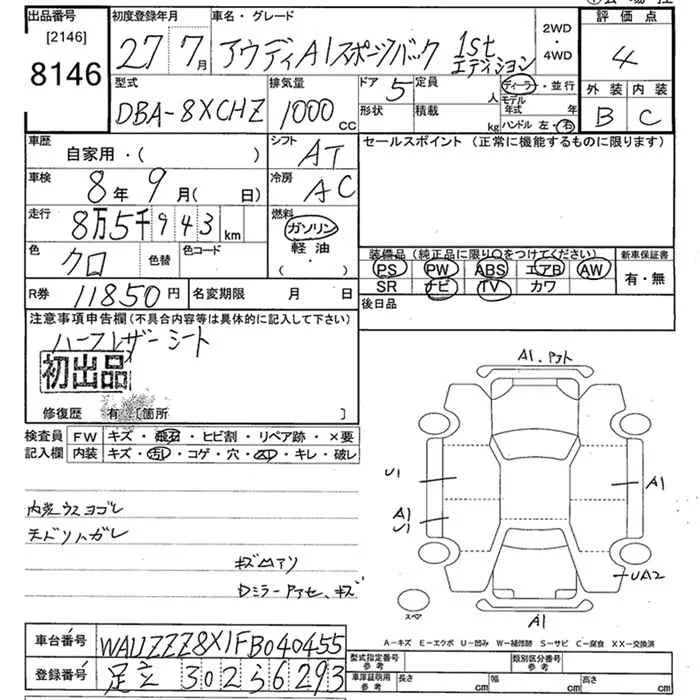 出品番号 初度登録年月 車名・グレード 2WD ・ 4WD 評価点
[2146]
8146
27 7月 アウディA1スポーツバック 1st エディション 4
型式 排気量 ドア 5 定員 人 ディーラー・並行 外装 内装
DBA-8XCHZ 1000 cc 形状 積載 kg モデル年式 年 B C
ハンドル 左・右
車歴 シフト セールスポイント (正常に機能するものに限ります)
自家用・( ) AT
車検 冷房
8年 9月( 日) AC
走行 燃料
8万5千943km ガソリン
軽油
・( )
色 クロ 色替 色コード
装備品 (純正品に限り○をつけてください) 新車保証書
PS PW ABS エアB AW 有・無
SR ナビ TV カワ
R券 11850円 名変期限 月 日 後日品
注意事項申告欄(不具合内容等は具体的に記入して下さい)
ハーフレザーシート
初出品
修復歴 有 [箇所 ]
検査員 FW キズ・飛石・ヒビ割・リペア跡・×要
記入欄 内装 キズ・汚レ・コゲ・穴・スレ・キレ・破レ
内装ウスヨゴレ
キズ
Dミラー キズ
A1.
U1
A1
A1
U1
UA2
スペア
A1
A-キズ E-エクボ U-凹み W-補修跡 S-サビ C-腐食 XX-交換済
車台番号 WAUZZZ8X1FB040455
登録番号 足立 302 6293
型式指定番号 参考 類別区分番号 参考
車庫証明用 参考 長さ cm 幅 cm 高さ cm